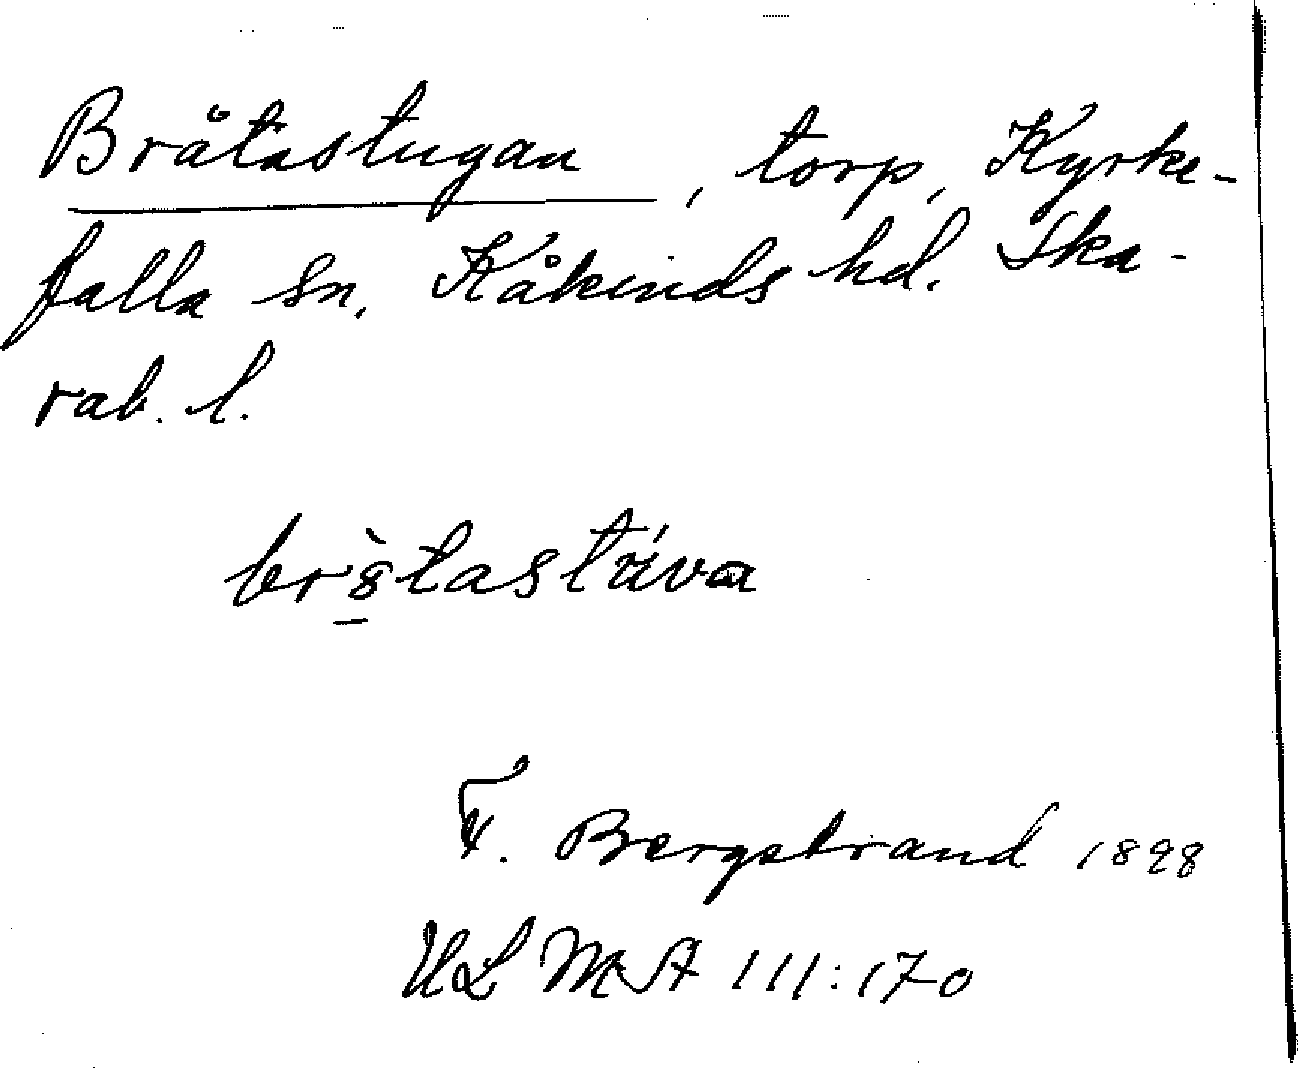 Bråtastugan, torp, Kyrke-
falla sn. Kåkinds hd. Ska-
rab. l.
br8̠̀tastäva
F. Bergstrand 1898
ULMA 111:170